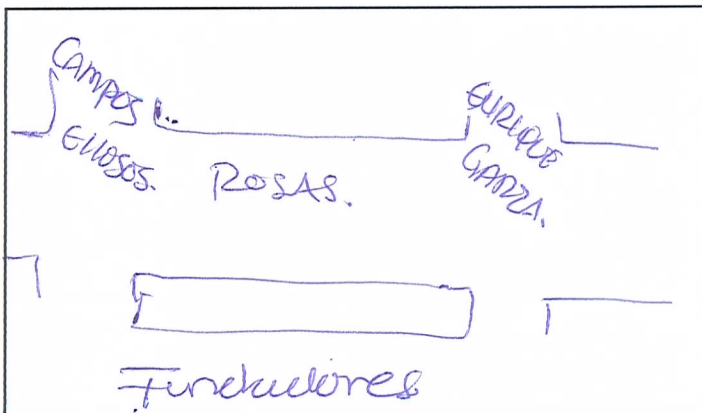 CAMPOS
ELISOSOS.
ROSAS.
ENRIQUE
GARZA.
Fundadores